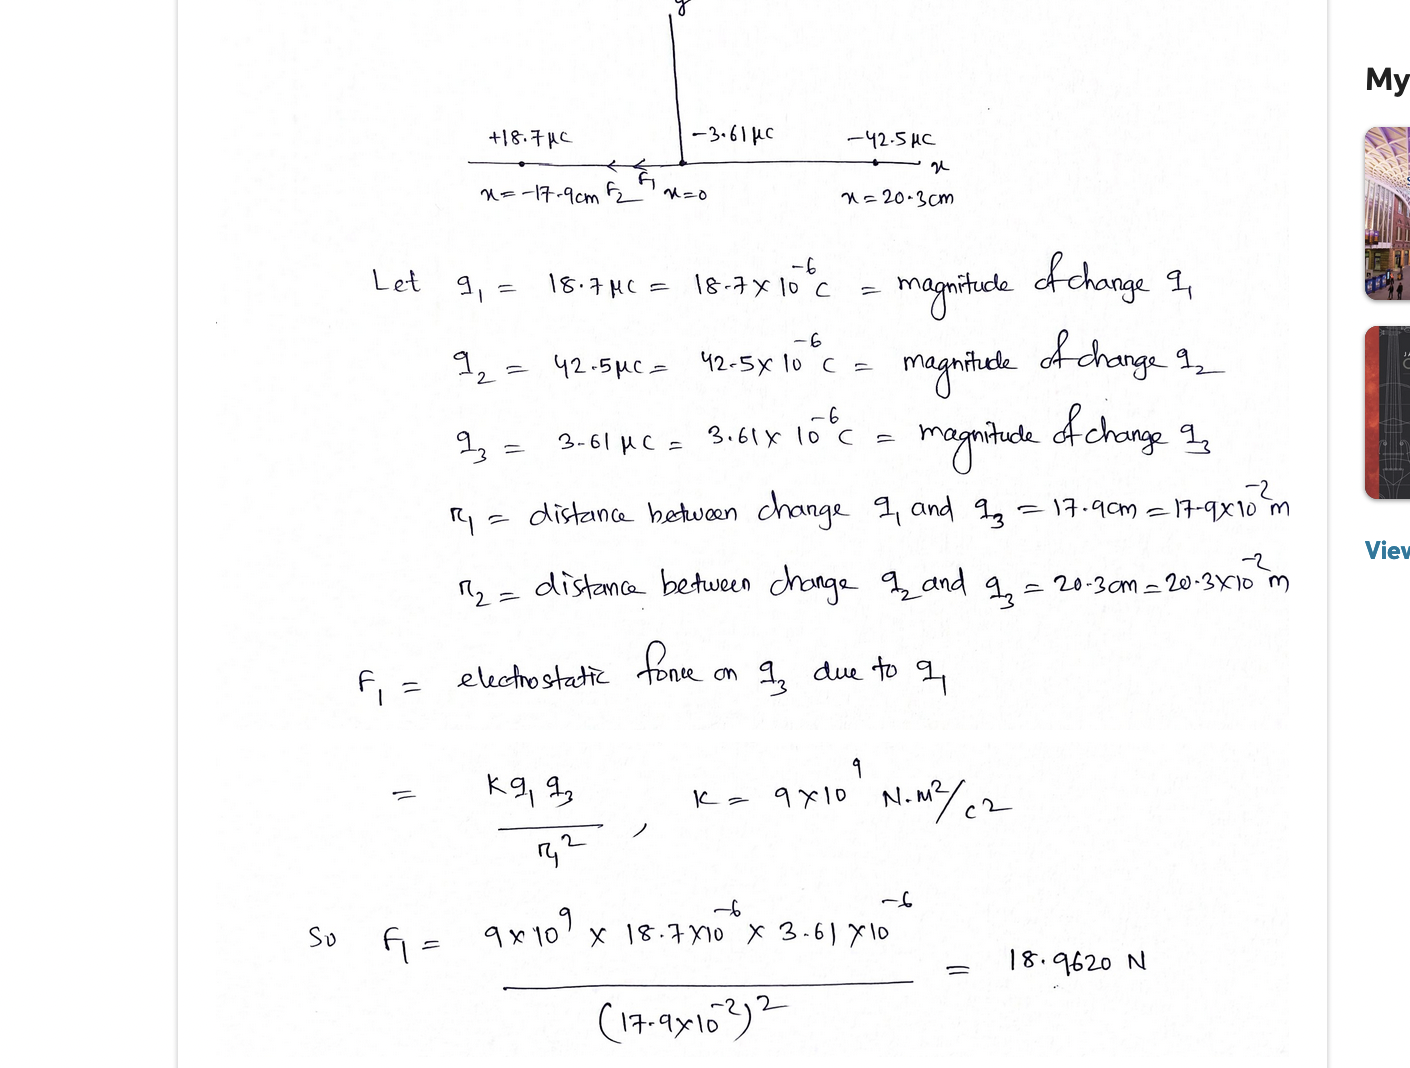 y
My
+18.7 μC
-3.61 μC
-42.5 μC
x
x = -17.9cm F₂ F₁ x=0
x = 20.3cm
Let q₁ = 18.7 μC = 18.7 x 10⁻⁶ C = magnitude of change q₁
q₂ = 42.5 μC = 42.5 x 10⁻⁶ C = magnitude of change q₂
q₃ = 3.61 μC = 3.61 x 10⁻⁶ C = magnitude of change q₃
r₁ = distance between change q₁ and q₃ = 17.9cm = 17.9x10⁻² m
View
r₂ = distance between change q₂ and q₃ = 20.3cm = 20.3x10⁻² m
F₁ = electrostatic force on q₃ due to q₁
= Kq₁ q₃ / r₁² , K = 9x10⁹ N.m²/C2
So F₁ = 9x10⁹ x 18.7x10⁻⁶ x 3.61x10⁻⁶ / (17.9x10⁻²)² = 18.9620 N